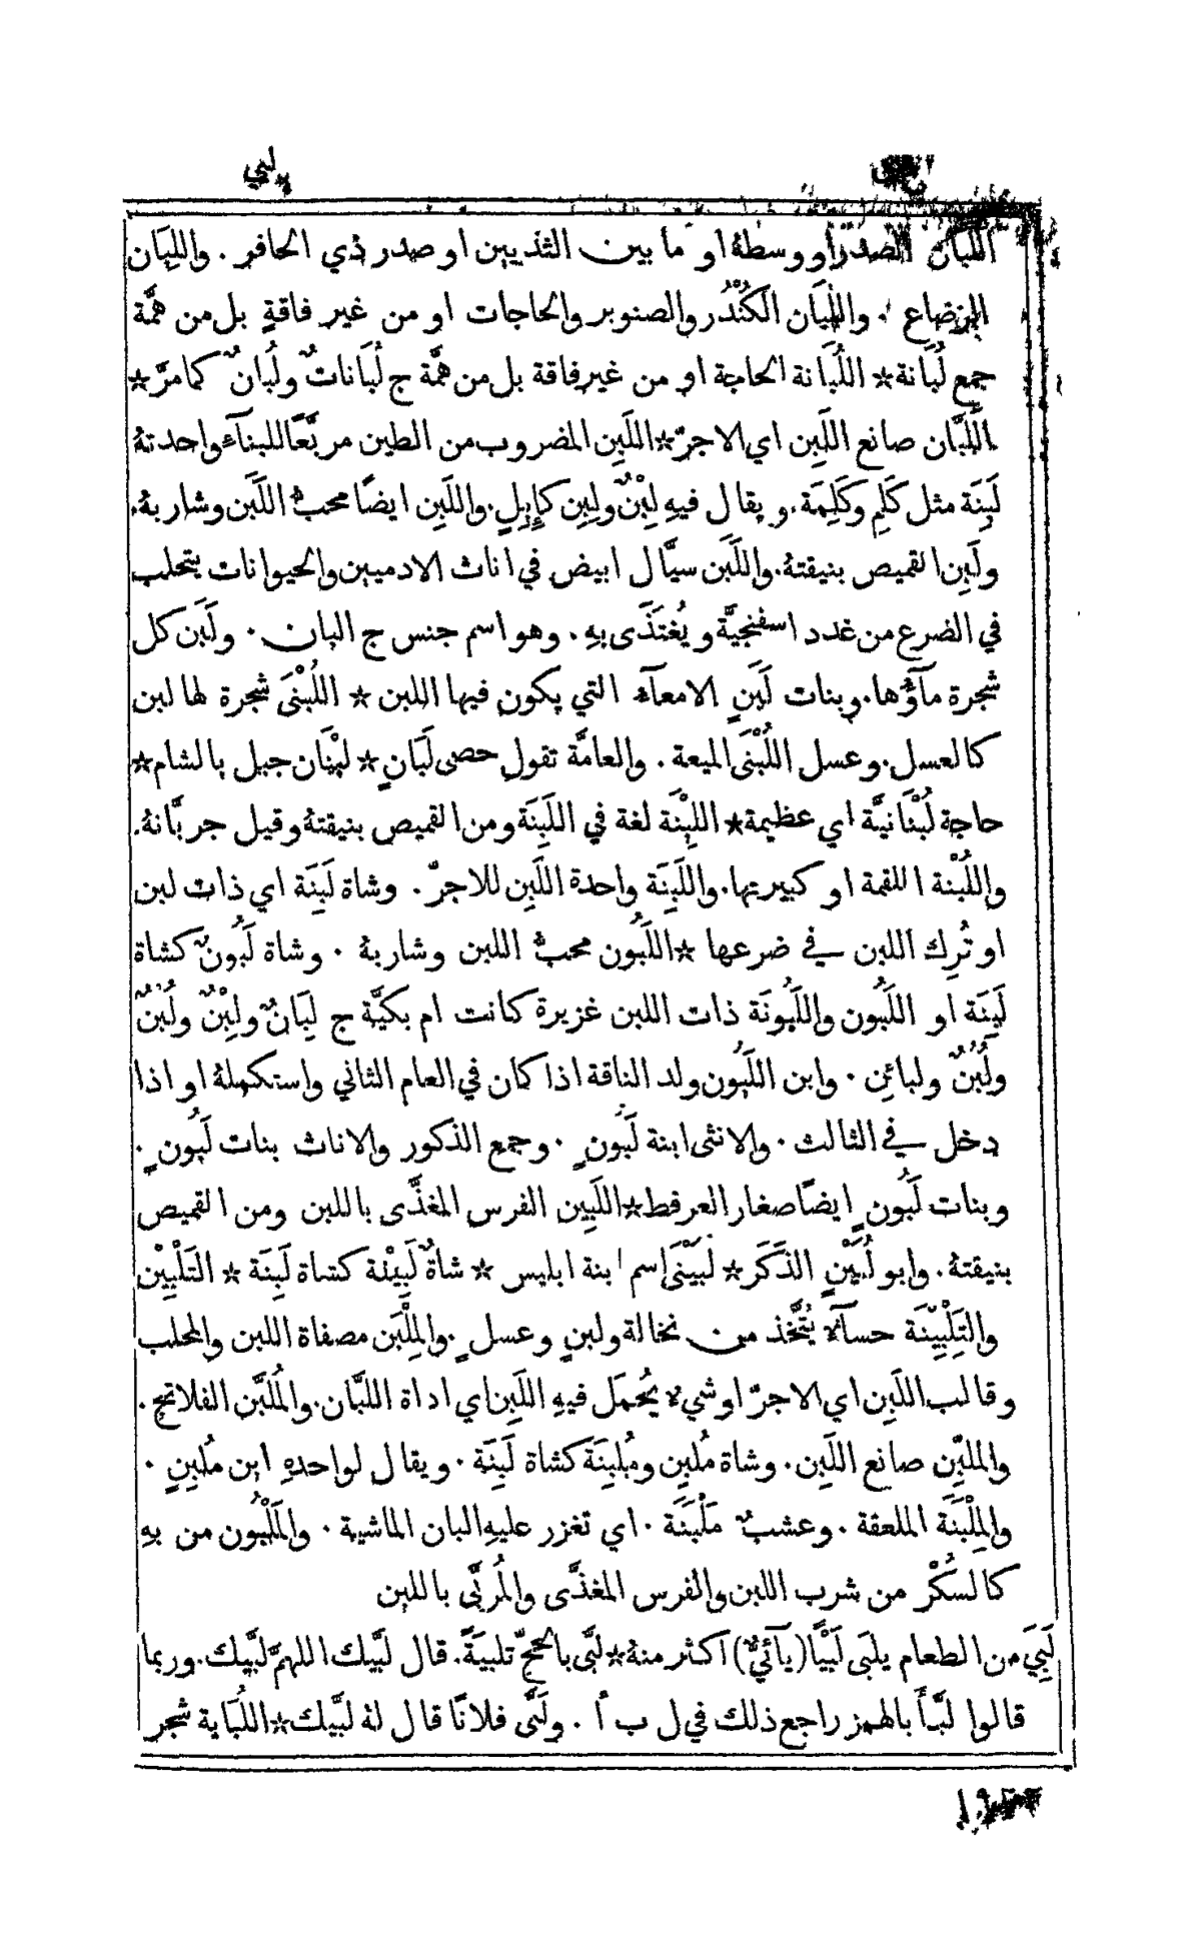 لبي
اللَّبَان الصدر او وسطهُ او ما بين الثديين او صدر ذي الحافر . واللِبَان
الرضاع . واللُبَان الكُنْدُر والصنوبر والحاجات او من غير فاقةٍ بل من همَّة
جمع لُبَانة ٭ اللُبَانة الحاجة او من غير فاقة بل من همَّة ج لُبَاناتٌ ولُبانٌ كما مرَّ ٭
اللَّبَّان صانع اللَبِن اي الاجرّ ٭ اللَبِن المضروب من الطين مربَّعًا للبناءَ واحدتهُ
لَبِنَة مثل كَلِم وكَلِمَة . ويقال فيهِ لِبْنٌ ولِبِن كإِبِلٍ . واللَبِن ايضًا محبُّ اللَبَن وشاربهُ .
ولَبِن القميص بنيقتهُ . واللَبَن سيَّال ابيض في اناث الادميين والحيوانات يتحلب
في الضرع من غدد اسفنجيَّة ويُغتَذَى بهِ . وهو اسم جنس ج البان . ولَبَن كل
شجرة ماؤُها . وبنات لَبَنٍ الامعآء التي يكون فيها اللبن ٭ اللُبْنَى شجرة لها لبن
كالعسل . وعسل اللُبْنَى الميعة . والعامَّة تقول حصى لَبَانٍ ٭ لبْنَان جبل بالشام ٭
حاجة لُبْنَانيَّة اي عظيمة ٭ اللِبْنَة لغة في اللَبِنَة ومن القميص بنيقتهُ وقيل جربَّانهُ .
واللُبْنة اللقمة او كبيرتها . واللَبِنَة واحدة اللَبِن للاجرّ . وشاة لَبِنَة اي ذات لبن
او تُرِك اللبن في ضرعها ٭ اللَبُون محبُّ اللبن وشاربهُ . وشاة لَبُونٌ كشاة
لَبِنَة او اللَبُون واللَبُونَة ذات اللبن غزيرة كانت ام بكيَّة ج لِبَانٌ ولِبْنٌ ولُبْنٌ
ولُبُنٌ ولبائِن . وابن اللَبُون ولد الناقة اذا كان في العام الثاني واستكملهُ او اذا
دخل في الثالث . والانثى ابنة لَبُونٍ . وجمع الذكور والاناث بنات لَبُونٍ .
وبنات لَبُونٍ ايضًا صغار العرفط ٭ اللَبِين الفرس المغذَّى باللبن ومن القميص
بنيقتهُ . وابو لُبَيْنٍ الذَّكَر ٭ لُبَيْنَى اسم ابنة ابليس ٭ شاةٌ لَبِيْنة كشاة لَبِنَة ٭ التَلْبِيْن
والتَلْبِيْنَة حسآءٌ يُتَّخذ من نخالة ولبنٍ وعسلٍ . والمِلْبَن مصفاة اللبن والمحلب
وقالب اللَبِن اي الاجرّ او شيءٌ يُحمَل فيهِ اللَبِن اي اداة اللبَّان . والمُلَبَّن الفلاتج .
والملبِّن صانع اللَبِن . وشاة مُلبِن ومُلبِنَة كشاة لَبِنَة . ويقال لواحدهِ ابن مُلبِنٍ .
والمِلْبَنَة الملعقة . وعشبٌ مَلْبَنَة . اي تغزر عليهِ البان الماشية . والمَلْبُون من بهِ
كالسُكْر من شرب اللبن والفرس المغذَّى والمُربَّى باللبن
لَبِيَ من الطعام يلبَى لَبْيًا (يآئيٌّ) اكثر منهُ ٭ لبَّى بالحجّ تلبيَةً . قال لبَّيك اللهمَّ لبَّيك . وربما
قالوا لبَّأَ بالهمز راجع ذلك في ل ب أ . ولَبَّى فلانًا قال لهُ لبَّيك ٭ اللُبَاية شجر